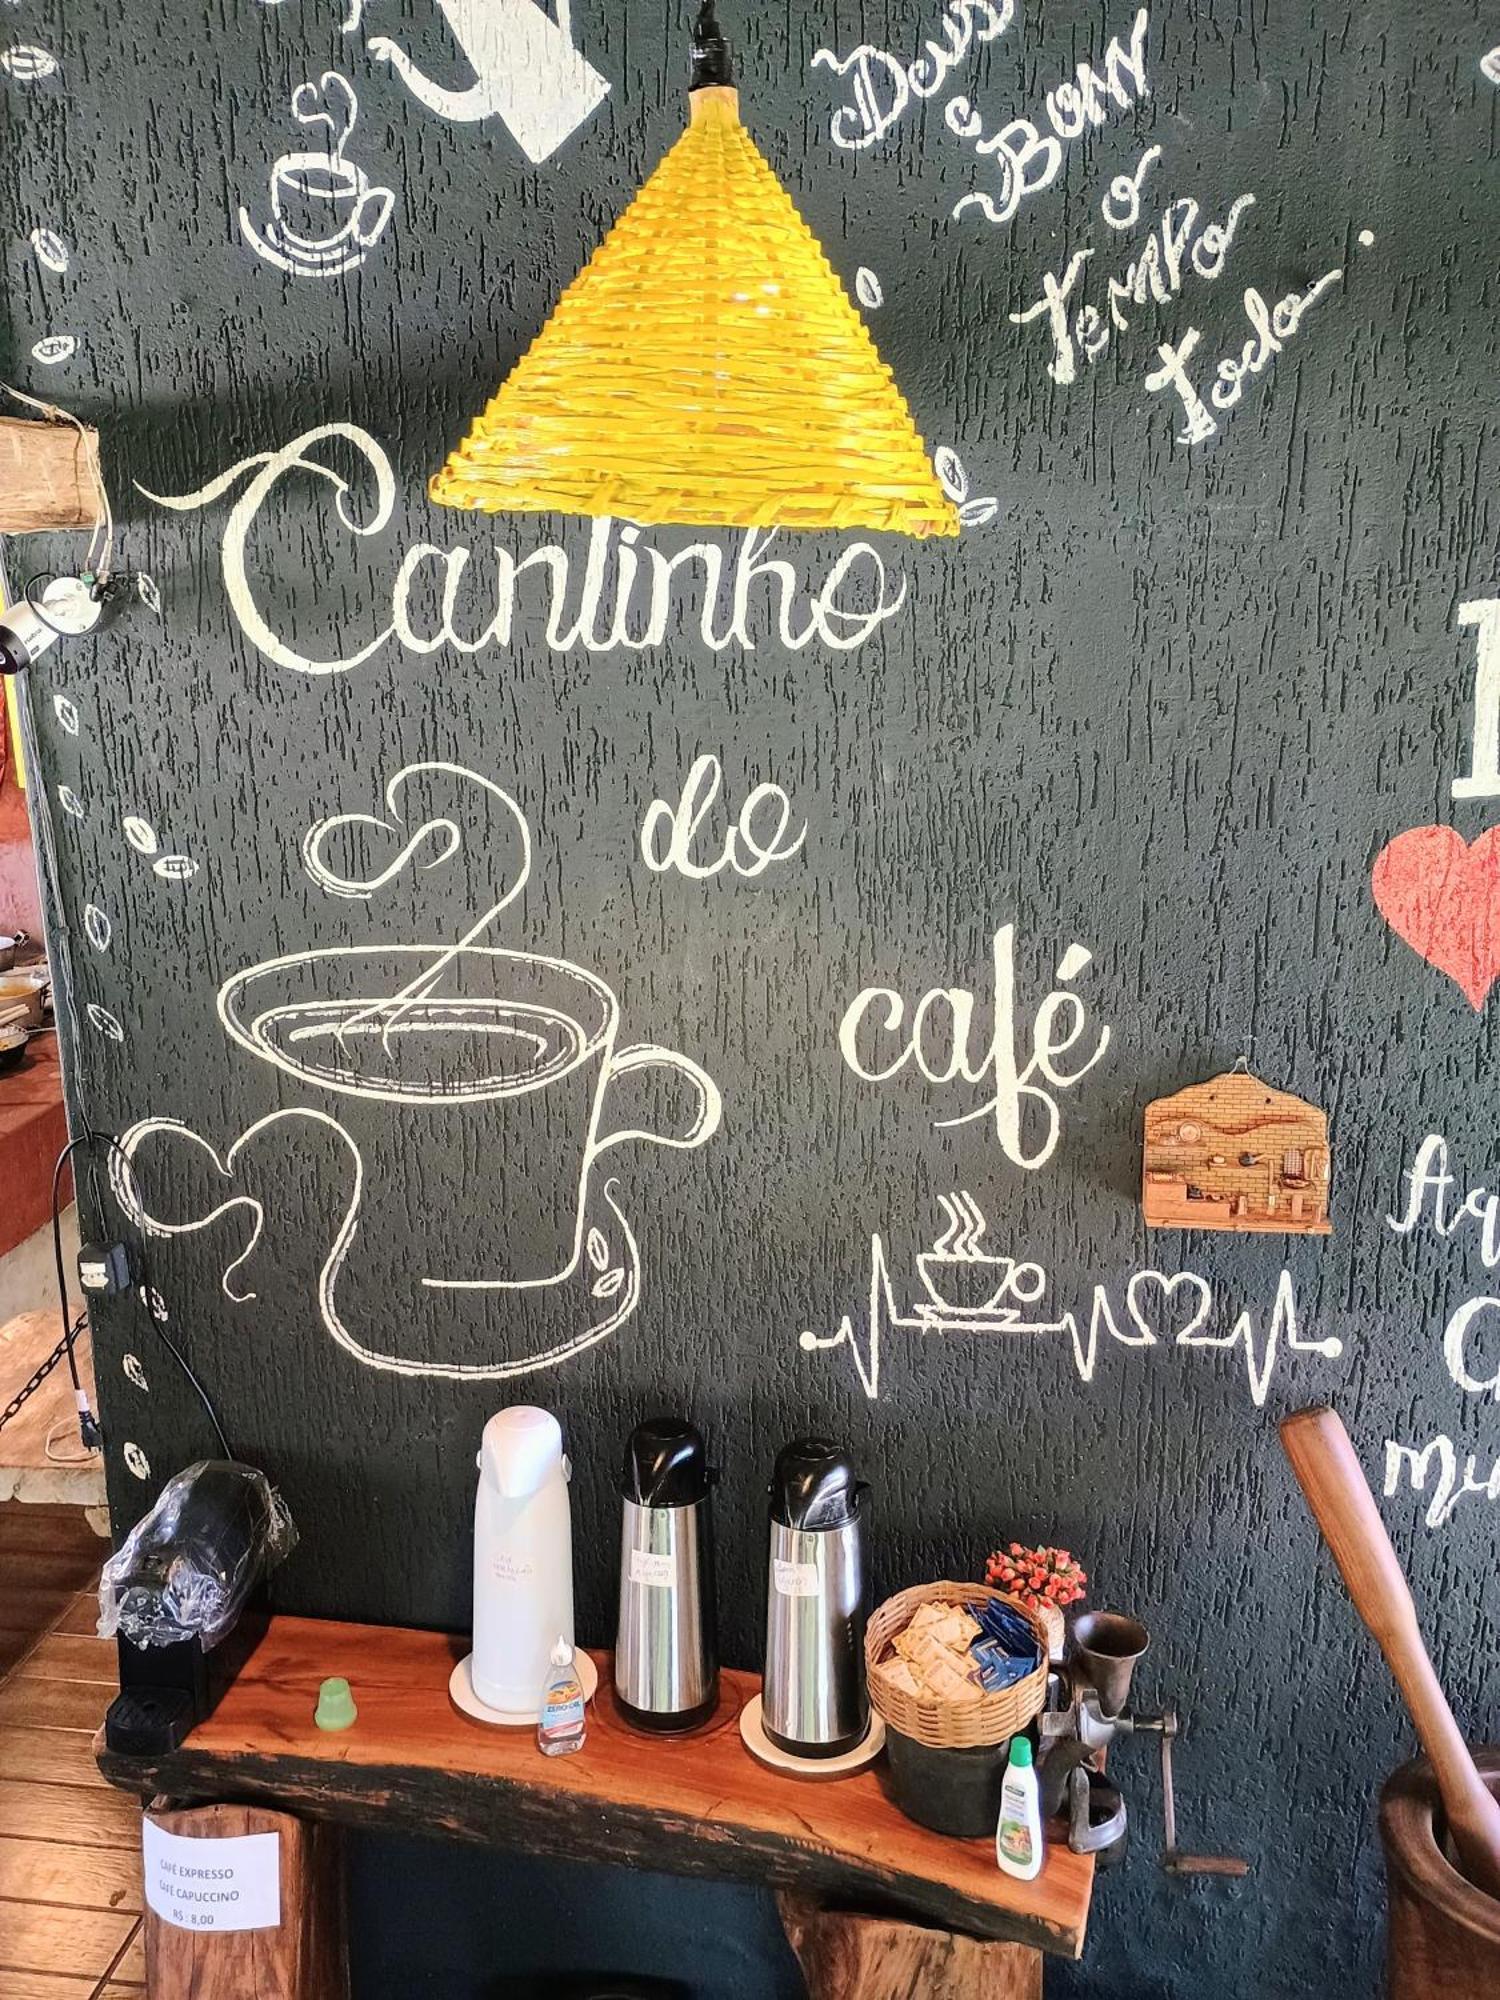 Deus
é
Bom
o
Tempo
Todo.
Cantinho
do
café
I
Aq
ZERO-CAL
CAFÉ EXPRESSO
CAFÉ CAPUCCINO
R$: 8,00